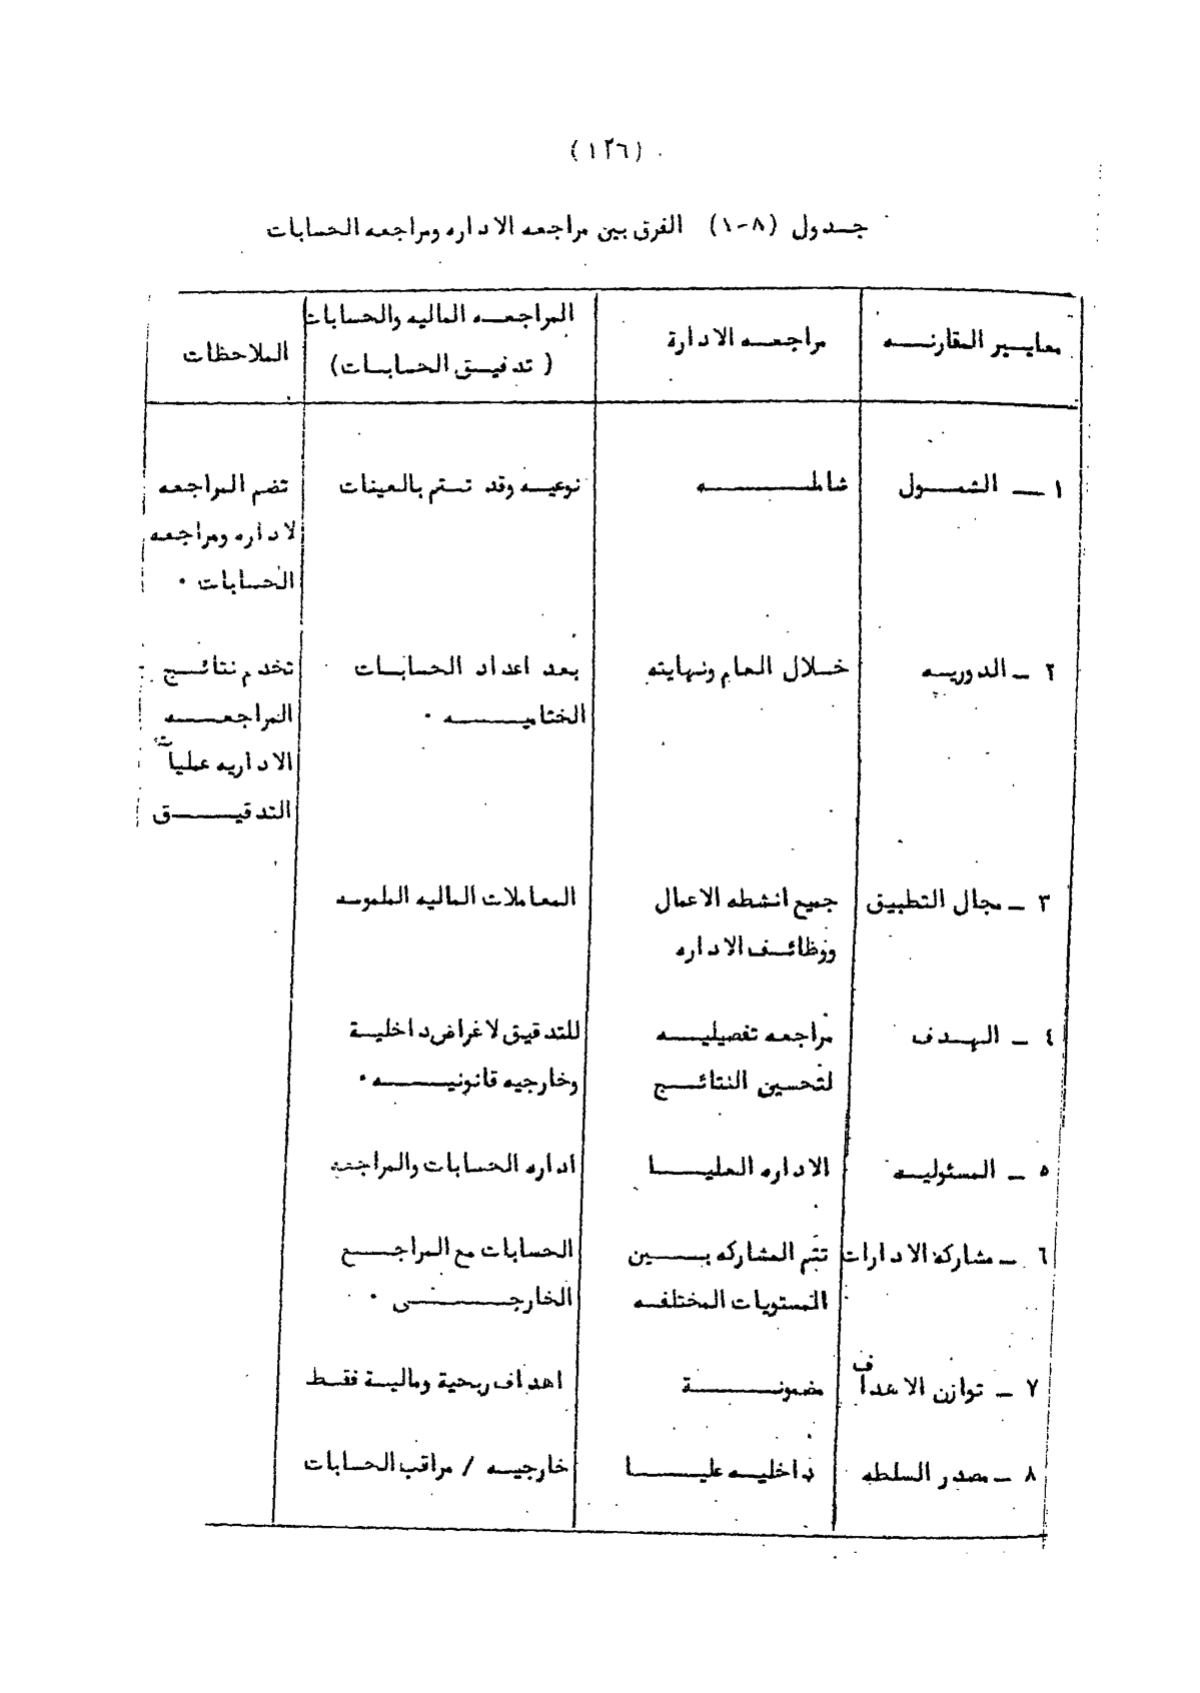 (١٢٦)
جدول (٨-١) الفرق بين مراجعه الاداره ومراجعه الحسابات
معايير المقارنه
مراجعه الادارة
المراجعه الماليه والحسابات
( تدقيق الحسابات)
الملاحظات
١ - الشمول
شامله
نوعيه وقد تستم بالعينات
تضم المراجعه
لاداره ومراجعه
الحسابات .
٢ - الدوريه
خلال العام ونهايته
بعد اعداد الحسابات
الختاميه .
تخدم نتائج
المراجعه
الاداريه عمليات
التدقيق
٣ - مجال التطبيق
جميع انشطه الاعمال
ووظائف الاداره
المعاملات الماليه الملموسه
٤ - الهدف
مراجعه تفصيليه
لتحسين النتائج
للتدقيق لاغراض داخلية
وخارجيه قانونيه .
٥ - المسئوليه
الاداره العليا
اداره الحسابات والمراجعه
٦ - مشاركة الادارات
تتم المشاركه بين
المستويات المختلفه
الحسابات مع المراجع
الخارجى .
٧ - توازن الاعداف
مضمونة
اهداف ربحية ومالية فقط
٨ - مصدر السلطه
داخليه عليا
خارجيه / مراقب الحسابات